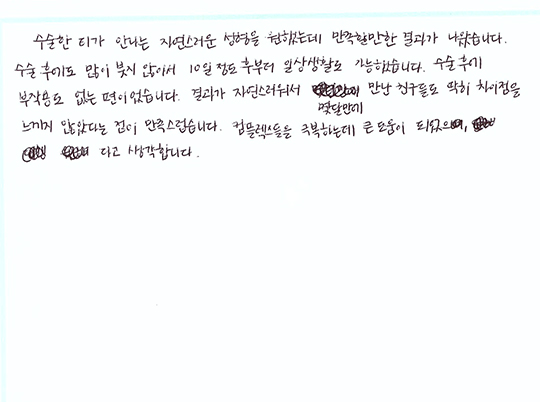 수술한 티가 안나는 자연스러운 성형을 원했는데 만족할만한 결과가 나왔습니다.
수술 후에도 많이 붓지 않아서 10일 정도 후부터 일상생활도 가능했습니다. 수술 후에
부작용도 없는 편이었습니다. 결과가 자연스러워서 만난 친구들도 딱히 차이점을
몇달만에
느끼지 않았다는 점이 만족스럽습니다. 컴플렉스를 극복하는데 큰 도움이 되었
다고 생각합니다.